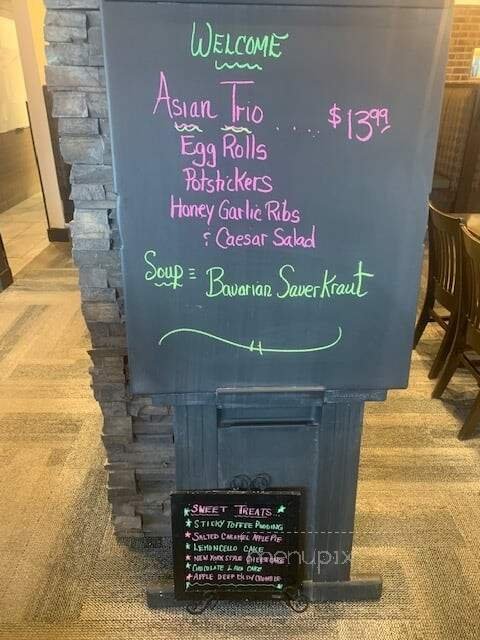 WELCOME
Asian Trio .... $13.99
Egg Rolls
Potstickers
Honey Garlic Ribs
& Caesar Salad
Soup = Bavarian SauerKraut
SWEET TREATS
* STICKY TOFFEE PUDDING
* SALTED CARAMEL APPLE PIE
* LEMONCELLO CAKE
* NEW YORK STYLE CHEESECAKE
* CHOCOLATE LAVA CAKE
* APPLE DEEP DISH CRUMBLE
menupix